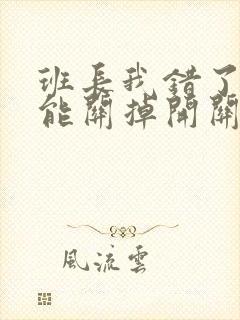 班長我錯了
能關掉開關
風流雲